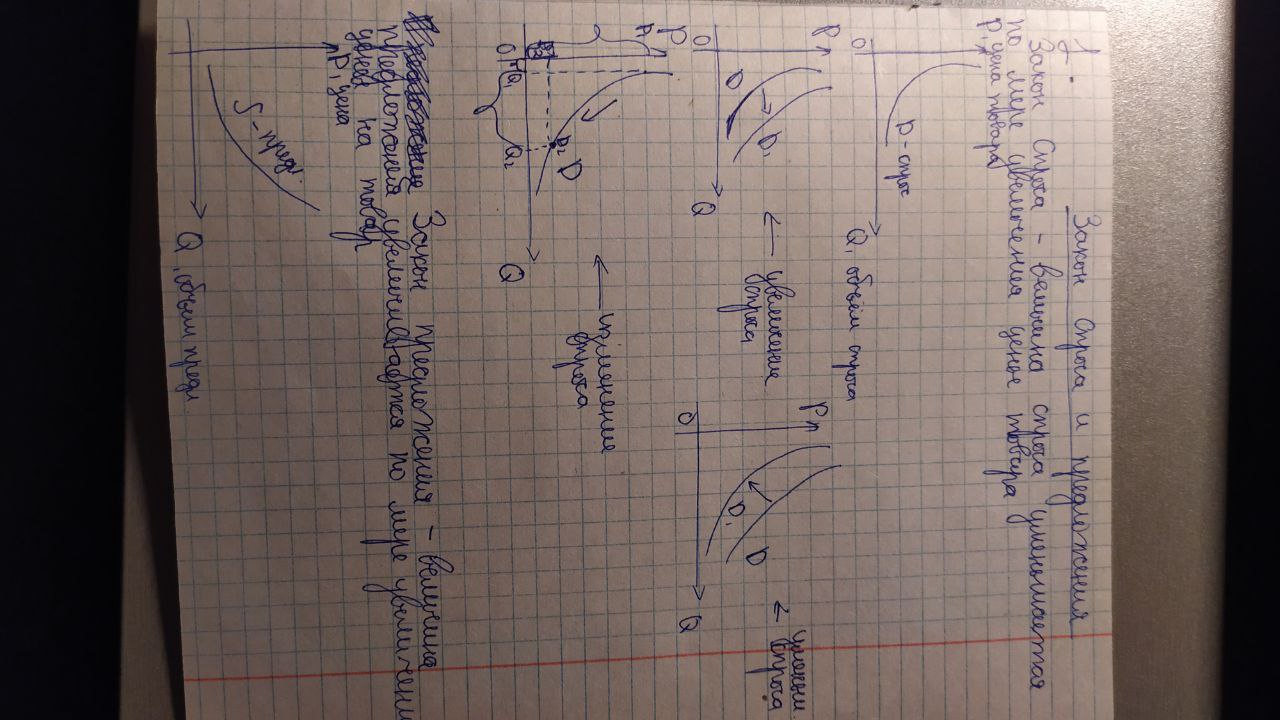 1.
Закон спроса и предложения
Закон спроса – величина спроса уменьшается
по мере увеличения цены товара
P, цена товара
D – спрос
0
Q, объём спроса
P
D
D₁
0
Q
← увеличение
спроса
P
D₁
D
0
Q
← уменьш.
спроса
P
P₁
P₂
D
0
Q₁
Q₂
Q
← изменение
спроса
Закон предложения – величина
предложения увеличивается по мере увеличения
цены на товар
P, цена
S – предл.
Q, объём предл.